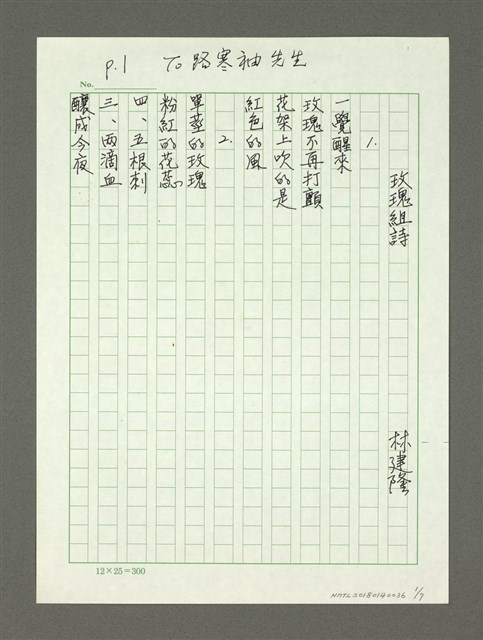 P.1 To 路寒袖先生
No.
玫瑰組詩 林建隆
1.
一覺醒來
玫瑰不再打顫
花架上吹的是
紅色的風
2.
單莖的玫瑰
粉紅的花蕊
四、五根刺
三、兩滴血
釀成今夜
12×25=300
NMTL20180140036 1/7